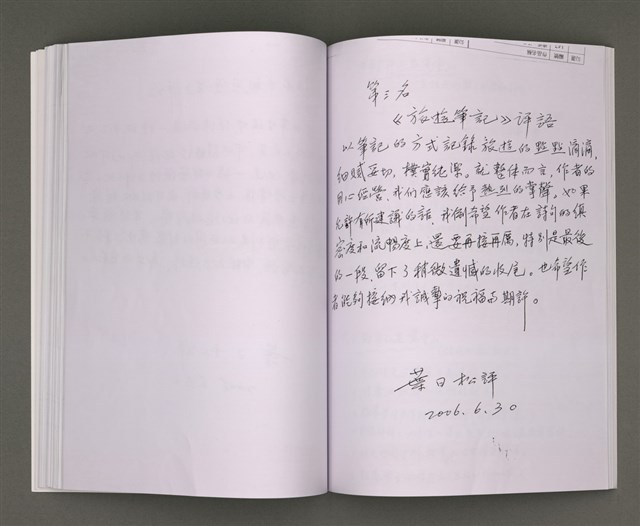 第三名
《旅遊筆記》評語
以筆記的方式記錄旅遊的點點滴滴,
細膩妥切,樸實純潔。就整体而言,作者的
用心經營,我們應該給予熱烈的掌聲。如果
允許有所建議的話,我倒希望作者在詩的俱
密度和流暢度上,還要再接再厲,特別是最後
的一段,留下了稍微遺憾的收尾。也希望作
者能夠接納我誠摯的祝福與期許。
葉日松評
2006.6.30